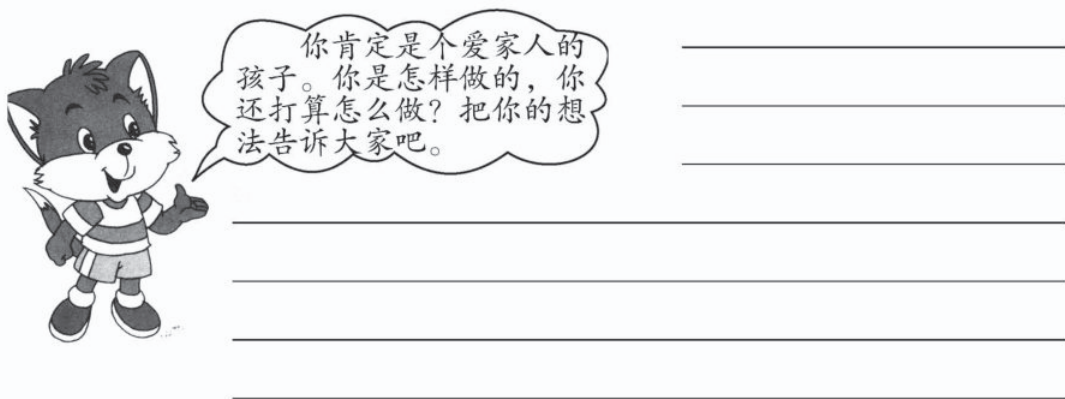 你肯定是个爱家人的
孩子。你是怎样做的，你
还打算怎么做？把你的想
法告诉大家吧。